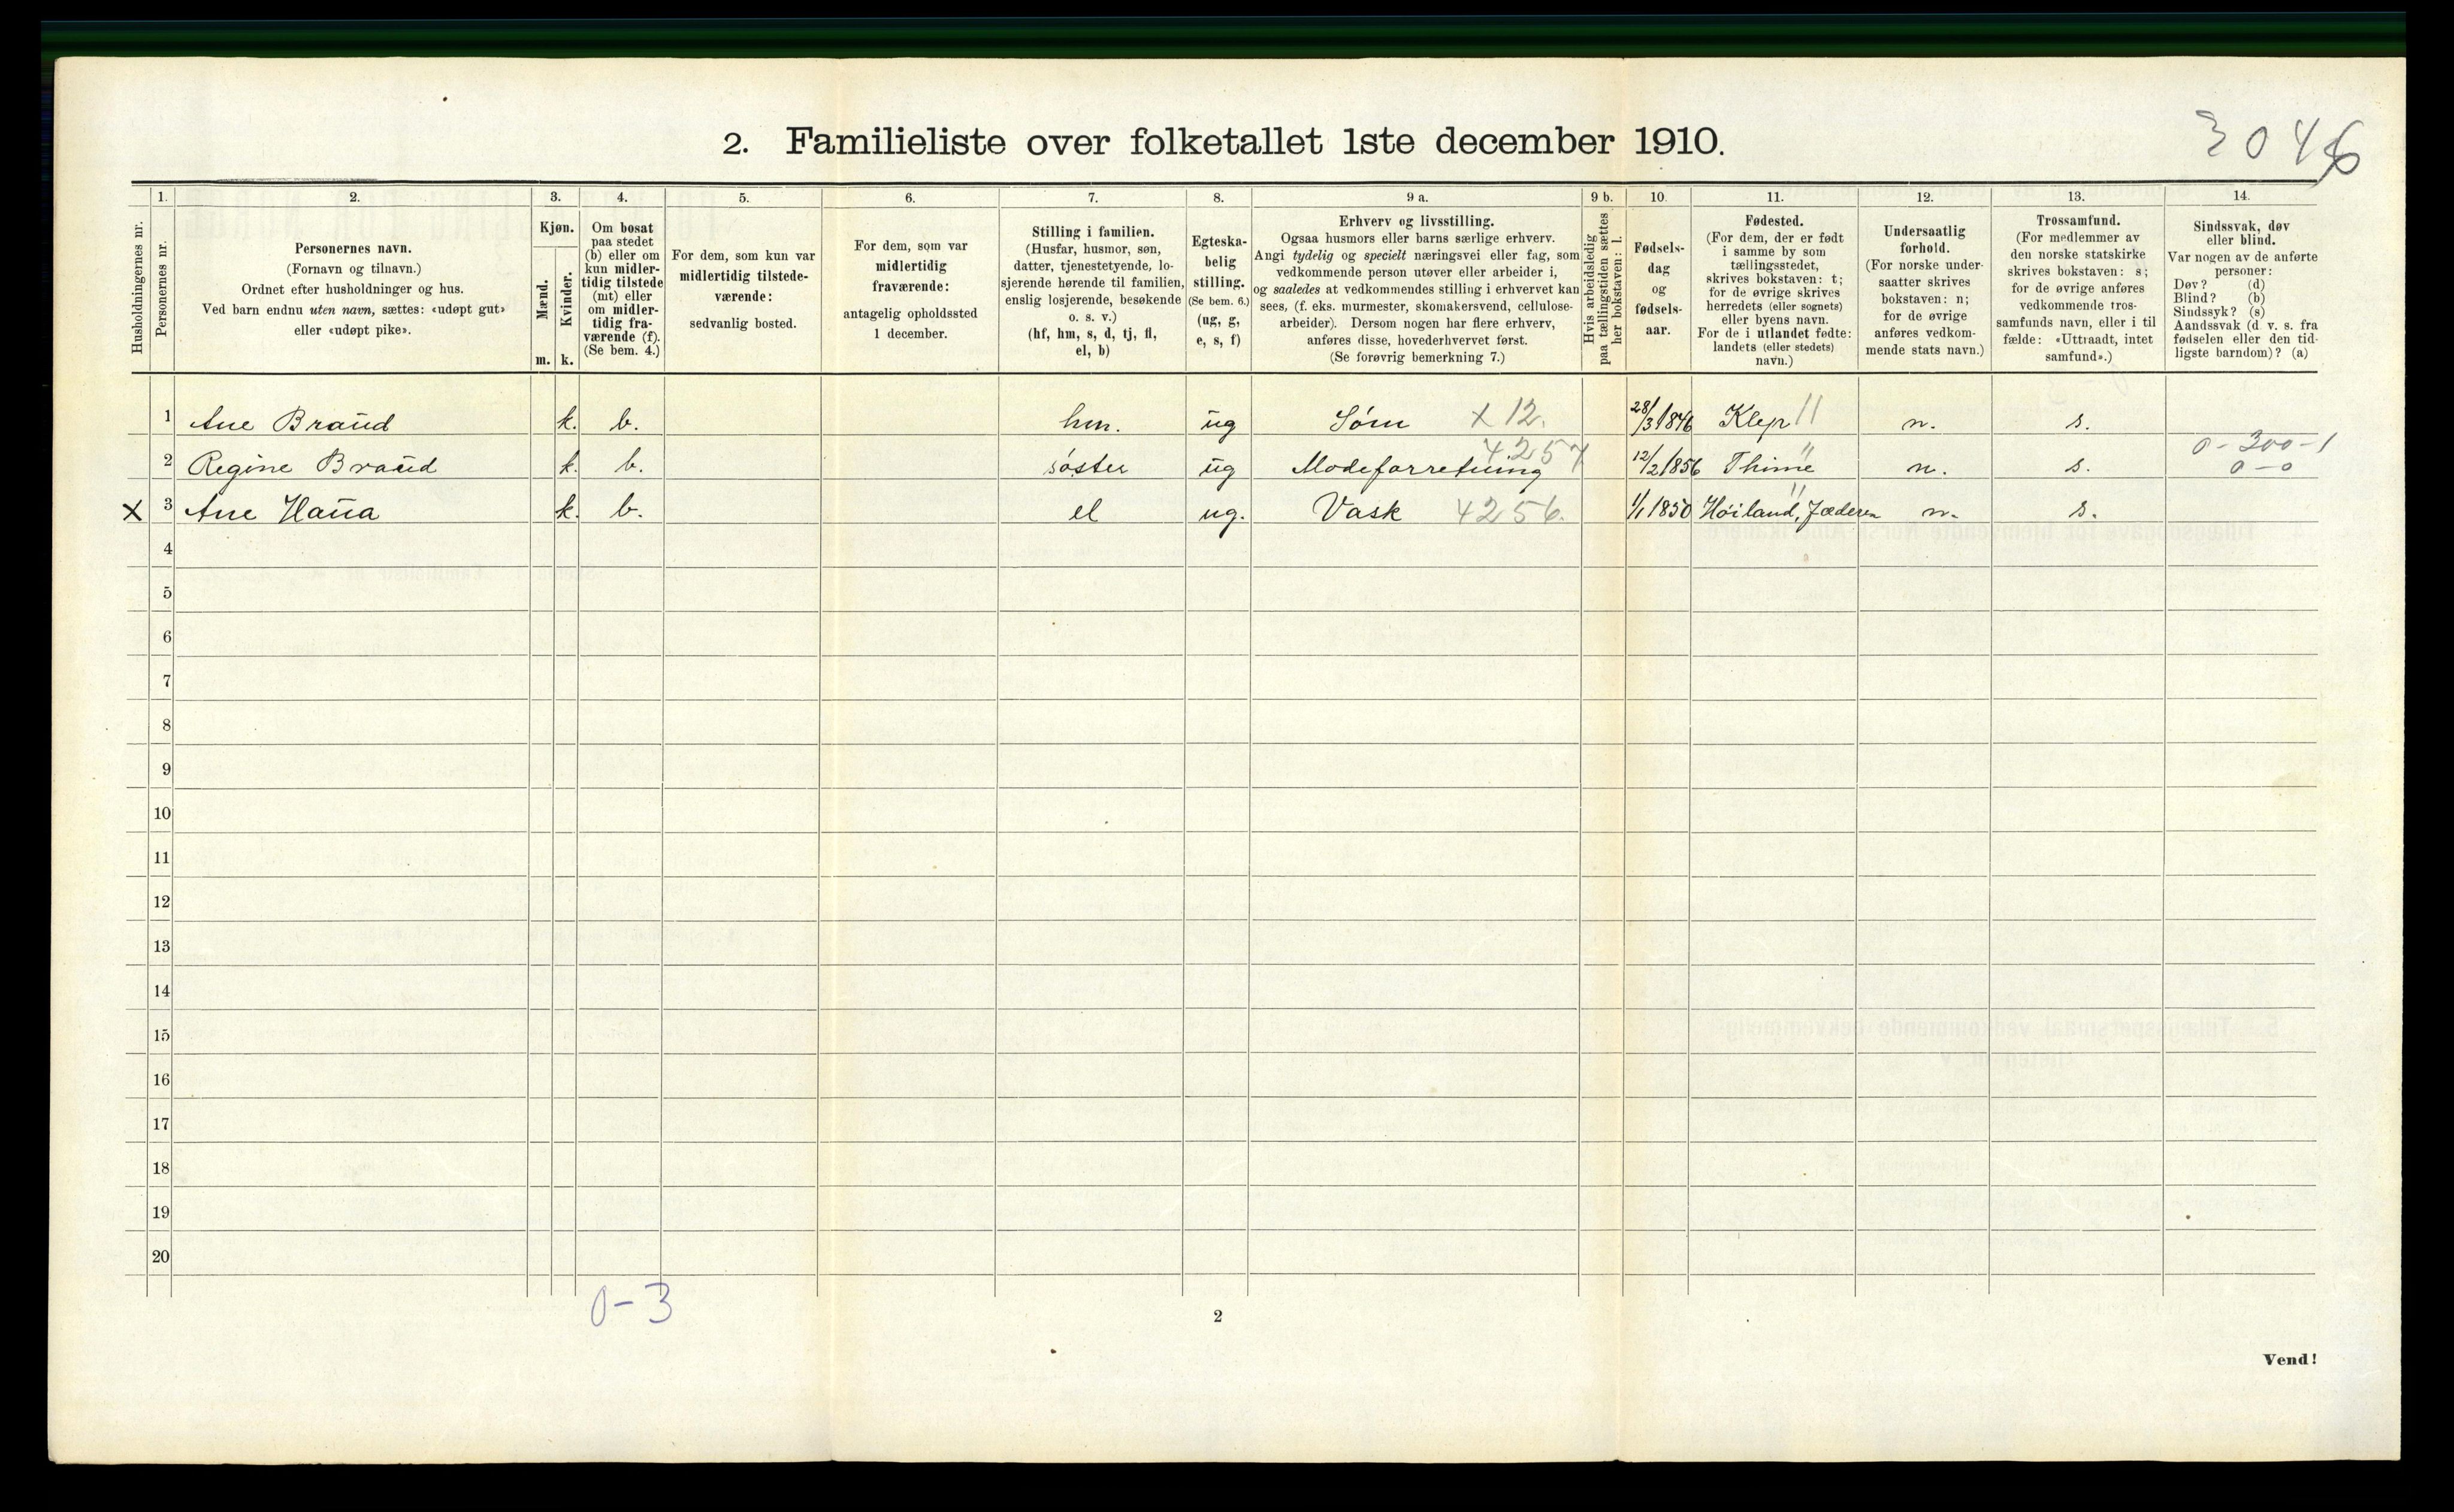 2. Familieliste over folketallet 1ste december 1910.
3046
Husholdningernes nr.
1.
Personernes nr.
2.
Personernes navn.
(Fornavn og tilnavn.)
Ordnet efter husholdninger og hus.
Ved barn endnu uten navn, sættes: «udøpt gut»
eller «udøpt pike».
3.
Kjøn.
Mænd.
Kvinder.
m. k.
4.
Om bosat
paa stedet
(b) eller om
kun midler-
tidig tilstede
(mt) eller
om midler-
tidig fra-
værende (f).
(Se bem. 4.)
5.
For dem, som kun var
midlertidig tilstede-
værende:
sedvanlig bosted.
6.
For dem, som var
midlertidig
fraværende:
antagelig opholdssted
1 december.
7.
Stilling i familien.
(Husfar, husmor, søn,
datter, tjenestetyende, lo-
sjerende hørende til familien,
enslig losjerende, besøkende
o. s. v.)
(hf, hm, s, d, tj, fl,
el, b)
8.
Egteska-
belig
stilling.
(Se bem. 6.)
(ug, g,
e, s, f)
9 a.
Erhverv og livsstilling.
Ogsaa husmors eller barns særlige erhverv.
Angi tydelig og specielt næringsvei eller fag, som
vedkommende person utøver eller arbeider i,
og saaledes at vedkommendes stilling i erhvervet kan
sees, (f. eks. murmester, skomakersvend, cellulose-
arbeider). Dersom nogen har flere erhverv,
anføres disse, hovederhvervet først.
(Se forøvrig bemerkning 7.)
9 b.
Hvis arbeidsledig
paa tællingstiden sættes
her bokstaven: l.
10.
Fødsels-
dag
og
fødsels-
aar.
11.
Fødested.
(For dem, der er født
i samme by som
tællingsstedet,
skrives bokstaven: t;
for de øvrige skrives
herredets (eller sognets)
eller byens navn.
For de i utlandet fødte:
landets (eller stedets)
navn.)
12.
Undersaatlig
forhold.
(For norske under-
saatter skrives
bokstaven: n;
for de øvrige
anføres vedkom-
mende stats navn.)
13.
Trossamfund.
(For medlemmer av
den norske statskirke
skrives bokstaven: s;
for de øvrige anføres
vedkommende tros-
samfunds navn, eller i til
fælde: «Uttraadt, intet
samfund».)
14.
Sindssvak, døv
eller blind.
Var nogen av de anførte
personer:
Døv? (d)
Blind? (b)
Sindssyk? (s)
Aandssvak (d. v. s. fra
fødselen eller den tid-
ligste barndom)? (a)
1 Ane Braud k. b. hm. ug Søm x 12. 28/3 1846 Klep " n. s.
2 Regine Braud k. b. søster ug Modeforretning 4257 12/2 1856 Thime " n. s. 0-300-1
0-0
X 3 Ane Haua k. b. el ug. Vask 4256. 1/1 1850 Høiland, Jæderen " n. s.
4
5
6
7
8
9
10
11
12
13
14
15
16
17
18
19
20
0-3
2
Vend!